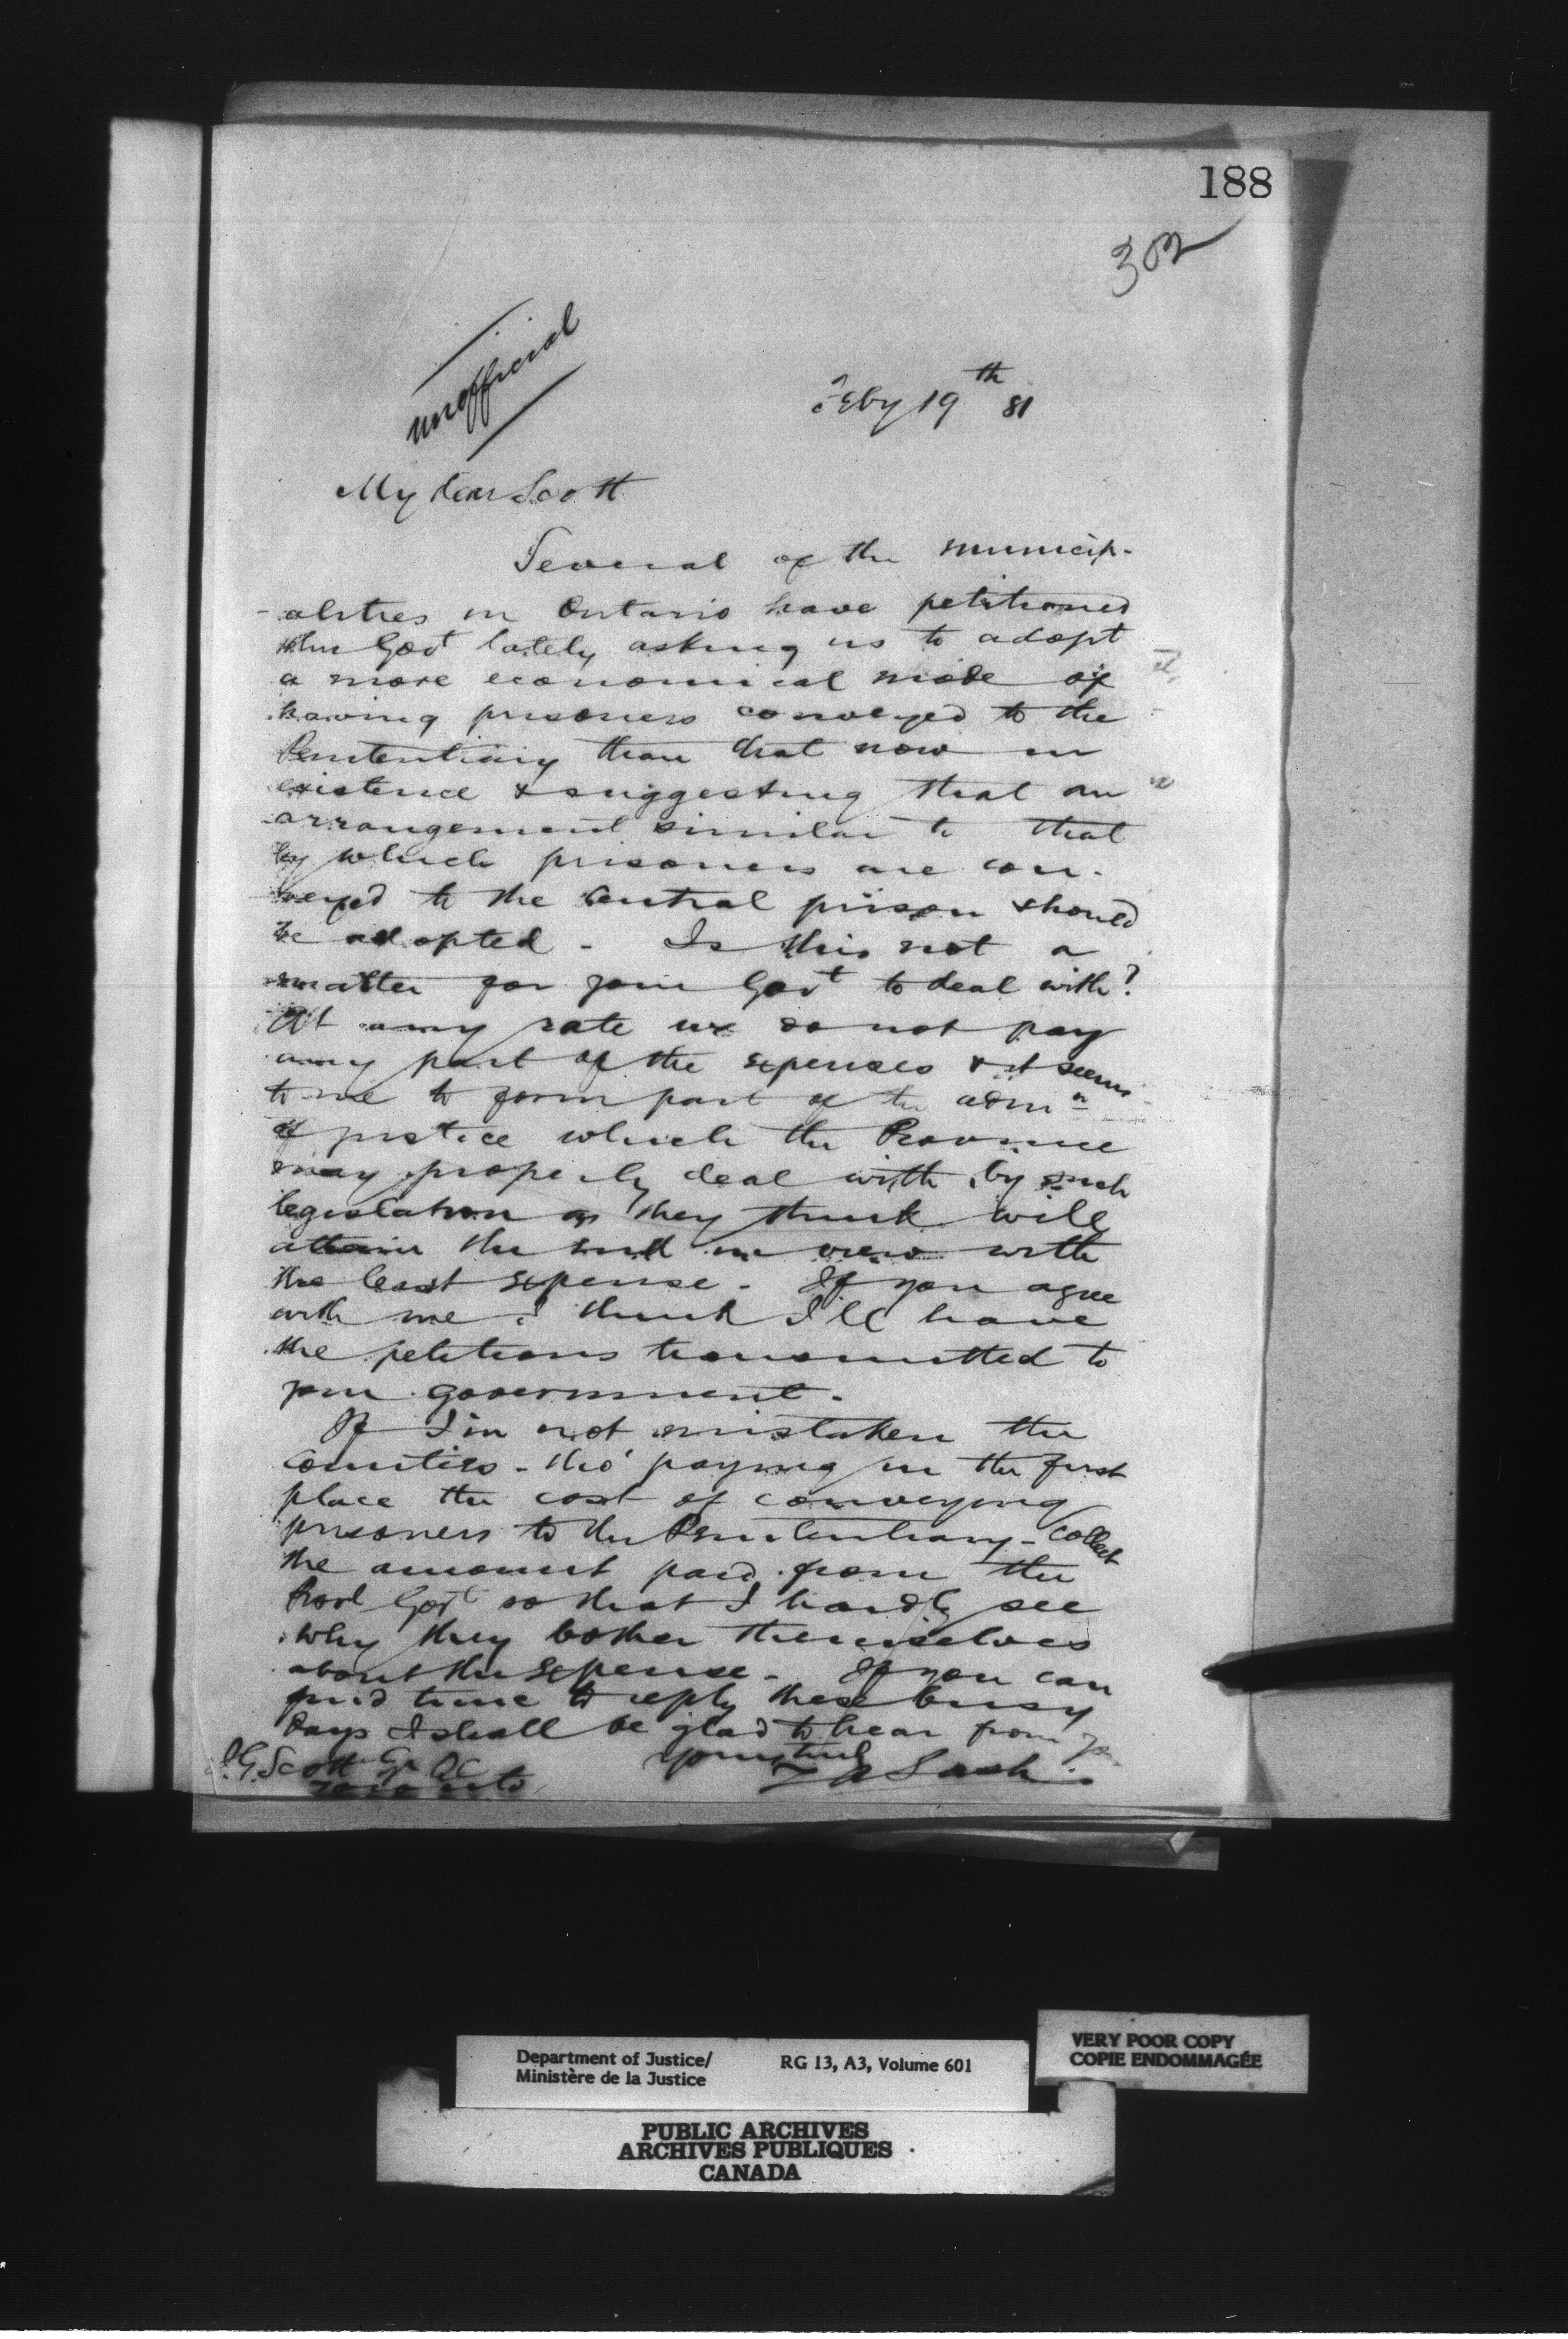 188
302
unofficial
Feby 19th 81
My dear Scott
Several of the municip-
-alities in Ontario have petitioned
the Govt lately asking us to adopt
a more economical mode of
having prisoners conveyed to the
Penitentiary than that now in
existence & suggesting that an
arrangement similar to that
by which prisoners are con-
veyed to the Central prison should
be adopted - Is this not a
matter for your Govt to deal with?
At any rate we do not pay
any part of the expenses & it seems
to me to form part of the admn
of justice which the Province
may properly deal with by such
legislation as they think will
attain the end in view with
the least expense - If you agree
with me I think I'll have
the petitions transmitted to
your government -
If I'm not mistaken the
Counties - tho' paying in the first
place the cost of conveying
prisoners to the Penitentiary - collect
the amount paid from the
Provl Govt so that I hardly see
why they bother themselves
about the expense - If you can
find time to reply these busy
days I shall be glad to hear from you
Yours truly
Z A Lash
J.G. Scott Esq QC
Toronto
Department of Justice/ RG 13, A3, Volume 601
Ministère de la Justice
VERY POOR COPY
COPIE ENDOMMAGÉE
PUBLIC ARCHIVES
ARCHIVES PUBLIQUES
CANADA